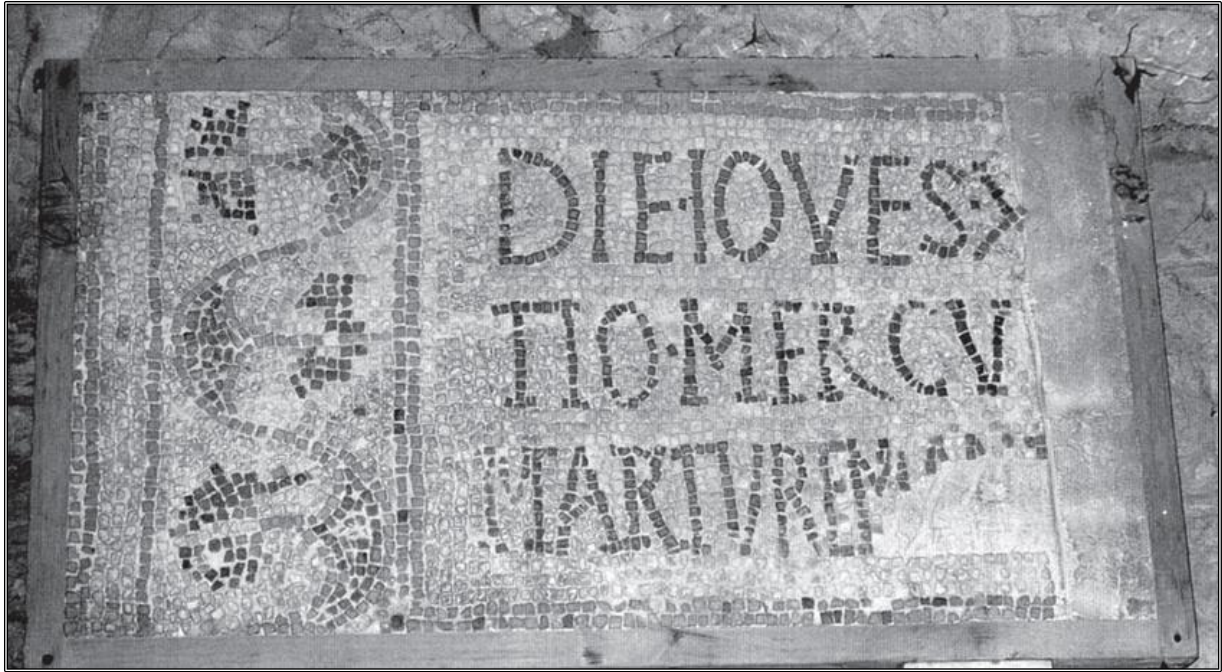 DIE·IOVES
TIO·MERCV
MARTVRE